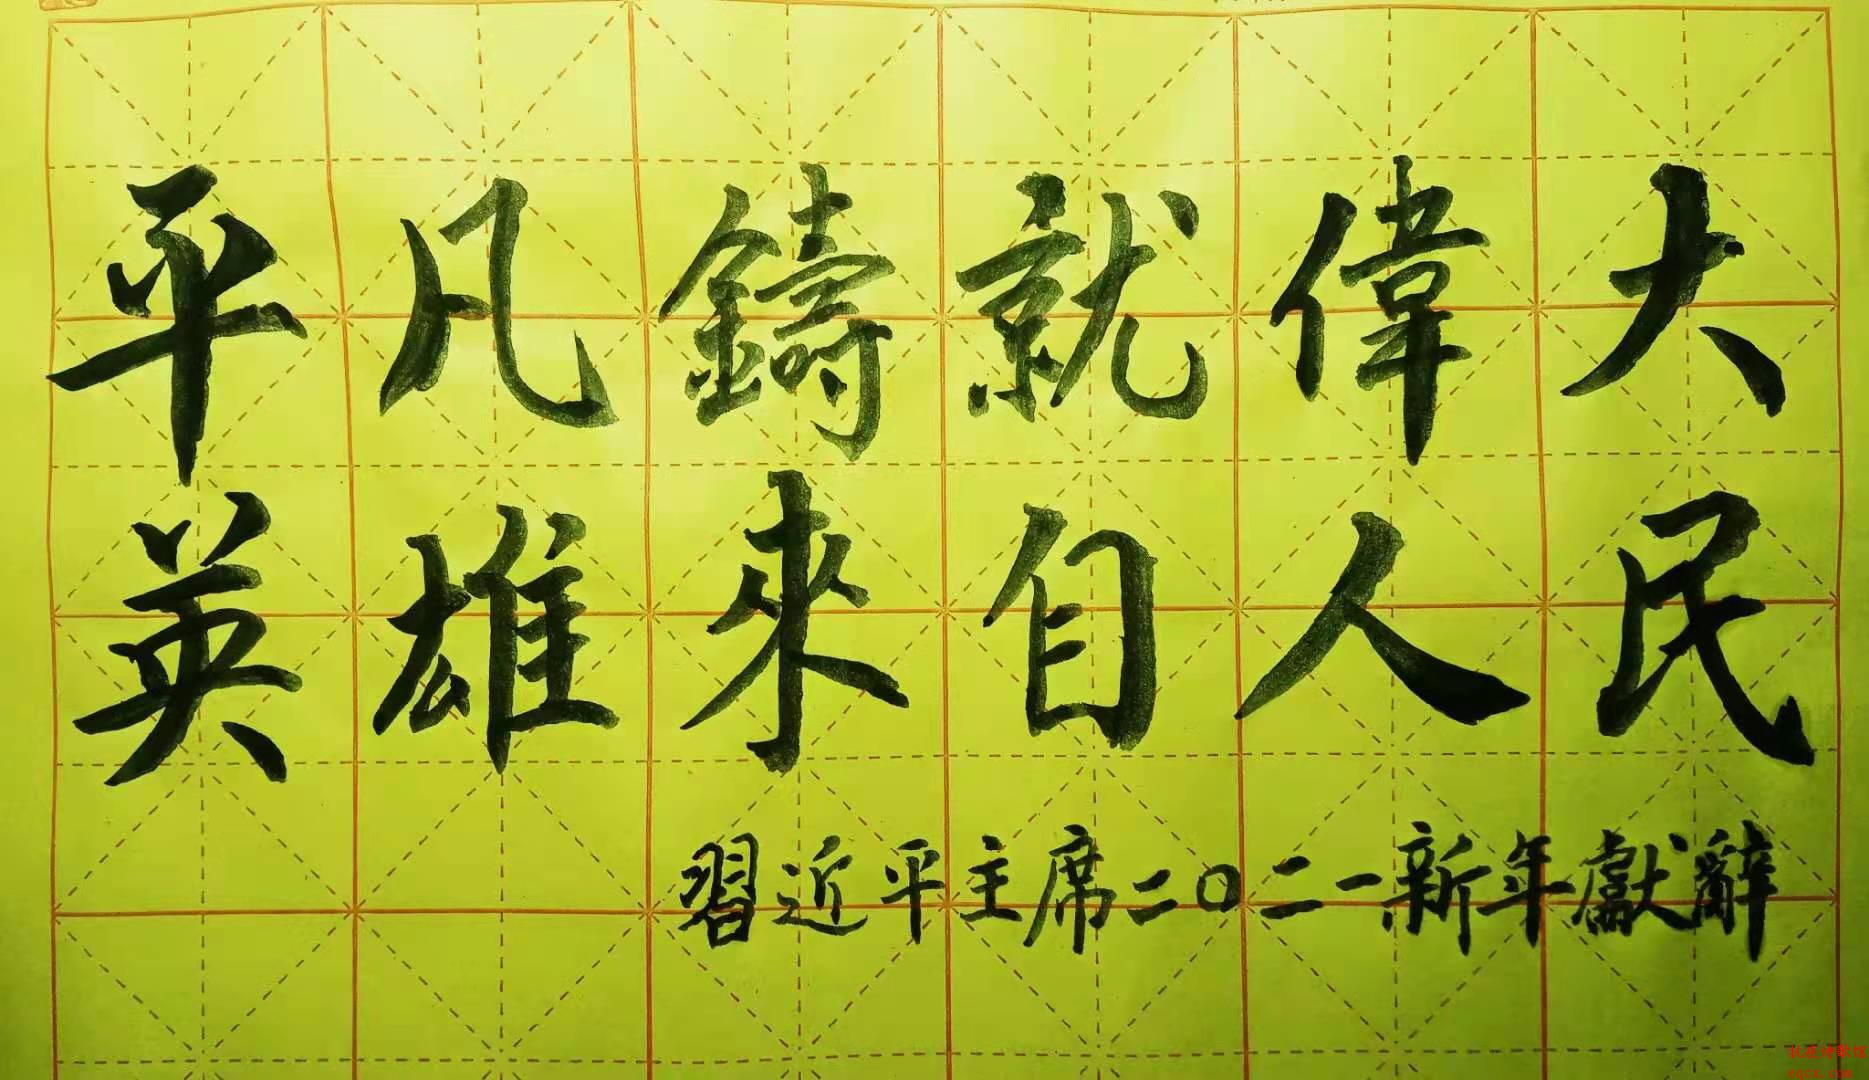 平凡鑄就偉大
英雄來自人民
習近平主席二〇二一新年獻辭